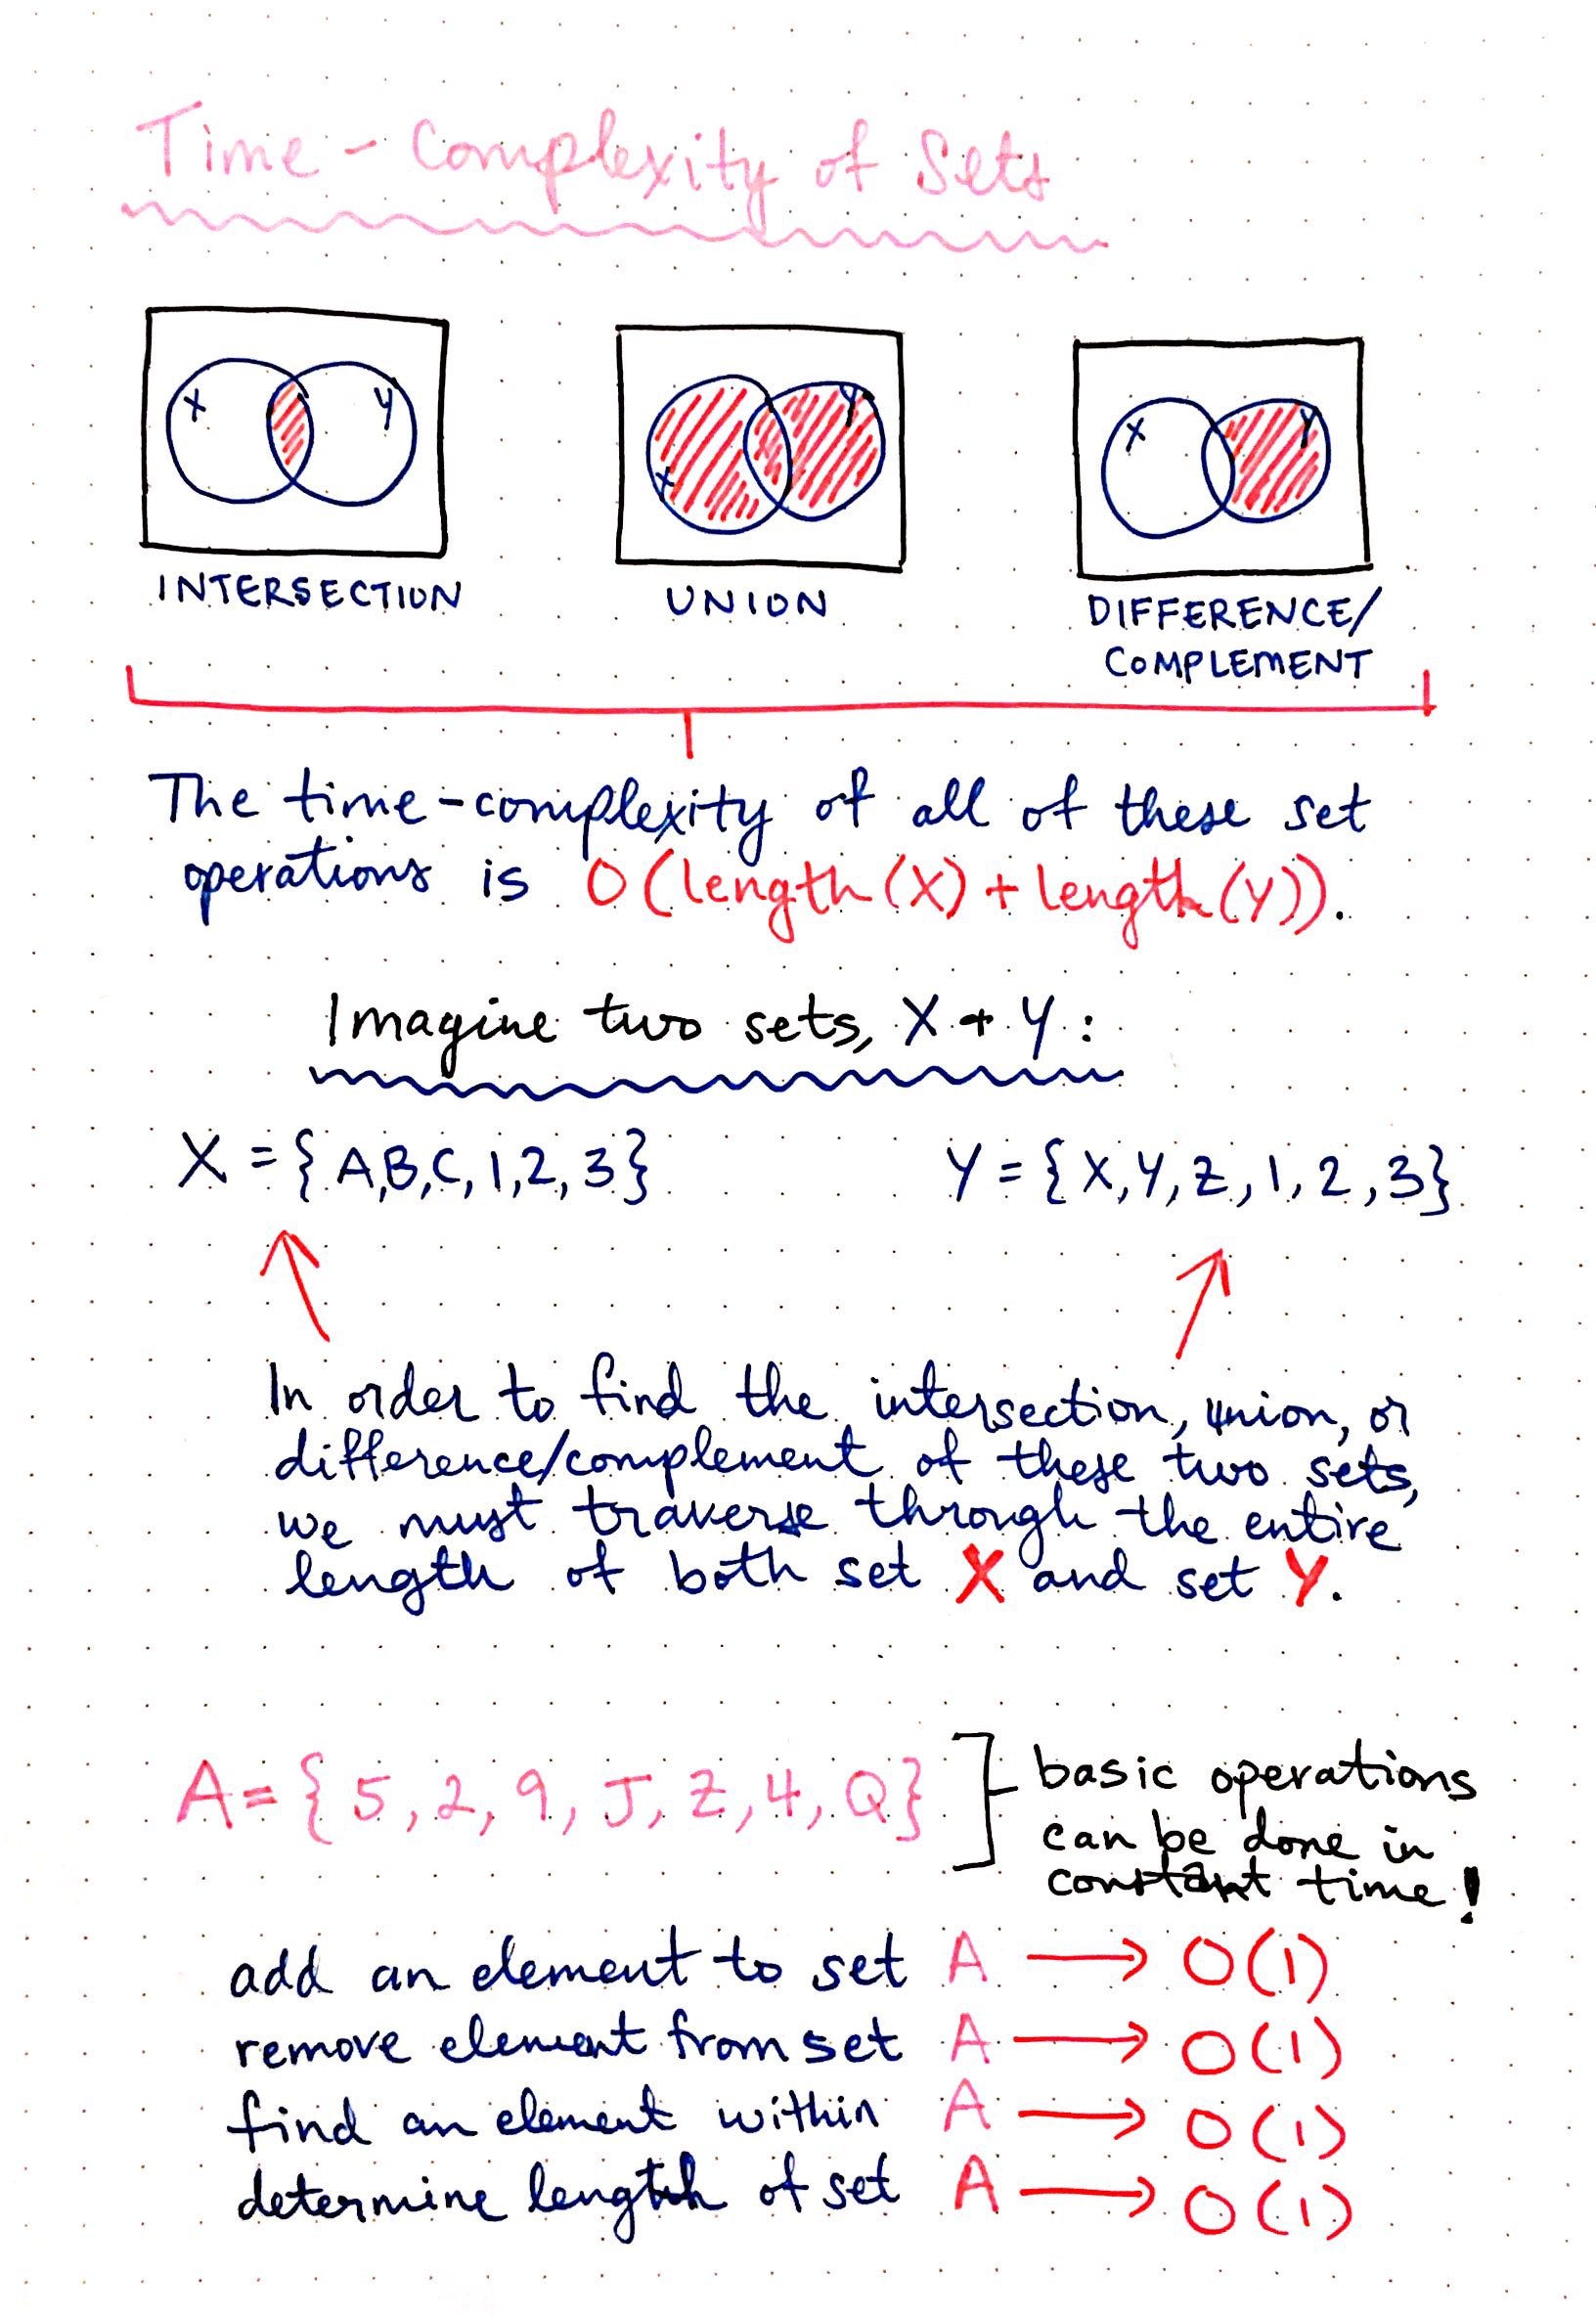 Time - Complexity of Sets
X Y
X Y
X Y
INTERSECTION
UNION
DIFFERENCE/
COMPLEMENT
The time-complexity of all of these set
operations is O(length(X) + length(Y)).
Imagine two sets, X + Y:
X = { A,B,C,1,2,3}
Y = {X,Y,Z,1,2,3}
In order to find the intersection, union, or
difference/complement of these two sets,
we must traverse through the entire
length of both set X and set Y.
A = { 5, 2, 9, J, Z, 4, Q}
basic operations
can be done in
constant time!
add an element to set A → O(1)
remove element from set A → O(1)
find an element within A → O(1)
determine length of set A → O(1)